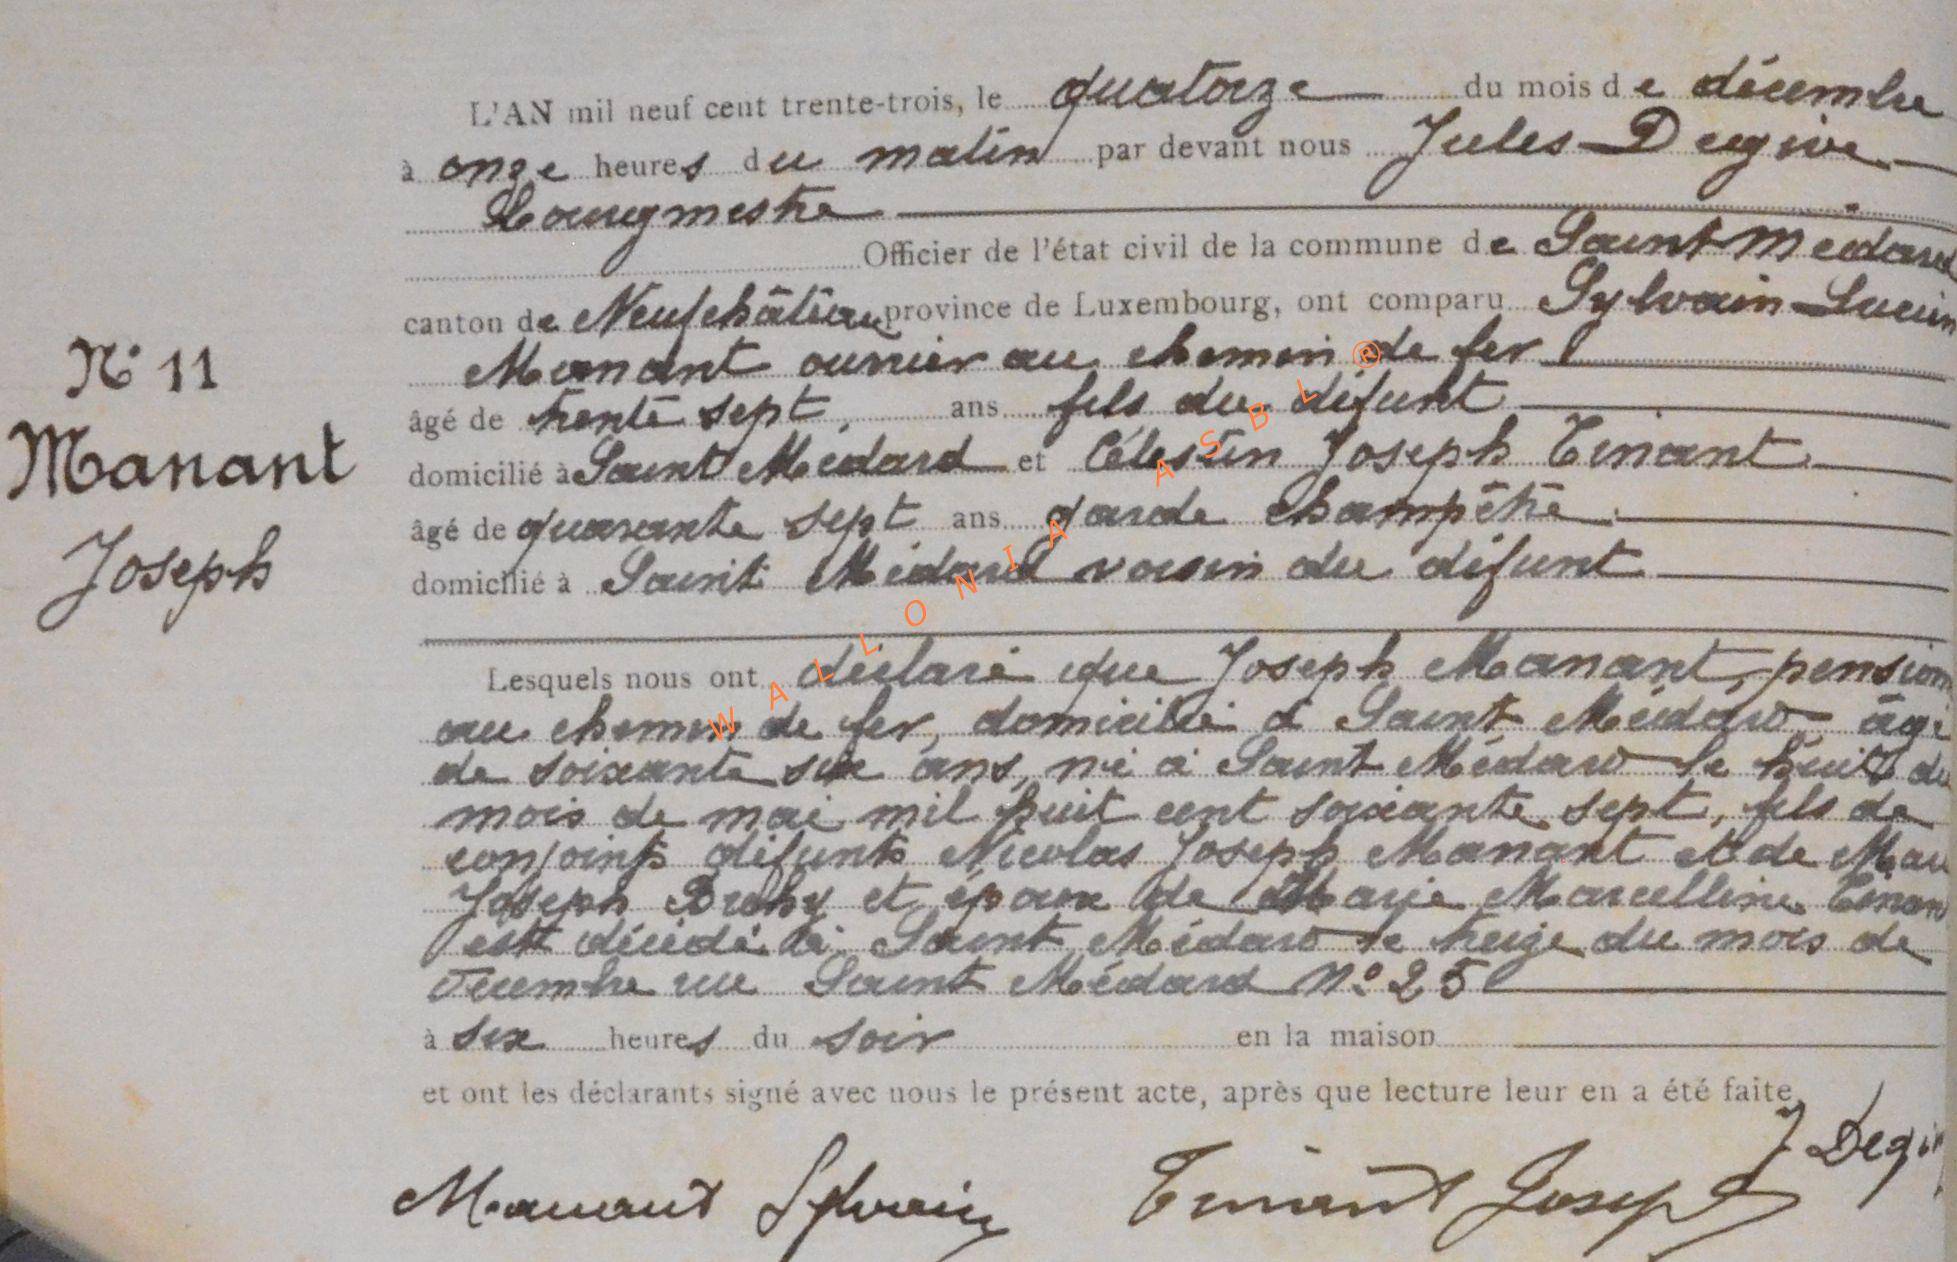 L'AN mil neuf cent trente-trois, le quatorze du mois de décembre
à onze heures du matin par devant nous Jules Degive
Bourgmestre
Officier de l'état civil de la commune de Saint Médard
canton de Neufchâteau province de Luxembourg, ont comparu Sylvain Lucien
N° 11
Manant ouvrier au chemin de fer
âgé de trente sept ans fils du défunt
Manant
domicilié à Saint Médard et Célestin Joseph Tinant
âgé de quarante sept ans garde champêtre
Joseph
domicilié à Saint Médard voisin du défunt
Lesquels nous ont déclaré que Joseph Manant, pension
au chemin de fer, domicilié à Saint Médard âgé
de soixante six ans, né à Saint Médard le huit du
mois de mai mil huit cent soixante sept, fils de
conjoints défunts Nicolas Joseph Manant et de Marie
Joseph Bruhy et époux de Marie Marcelline Tinant
est décédé à Saint Médard le treize du mois de
décembre rue Saint Médard N° 25
à six heures du soir en la maison
et ont les déclarants signé avec nous le présent acte, après que lecture leur en a été faite,
J Degi
Manant Sylvain Tinant Joseph
WALLONIA ASBL ®